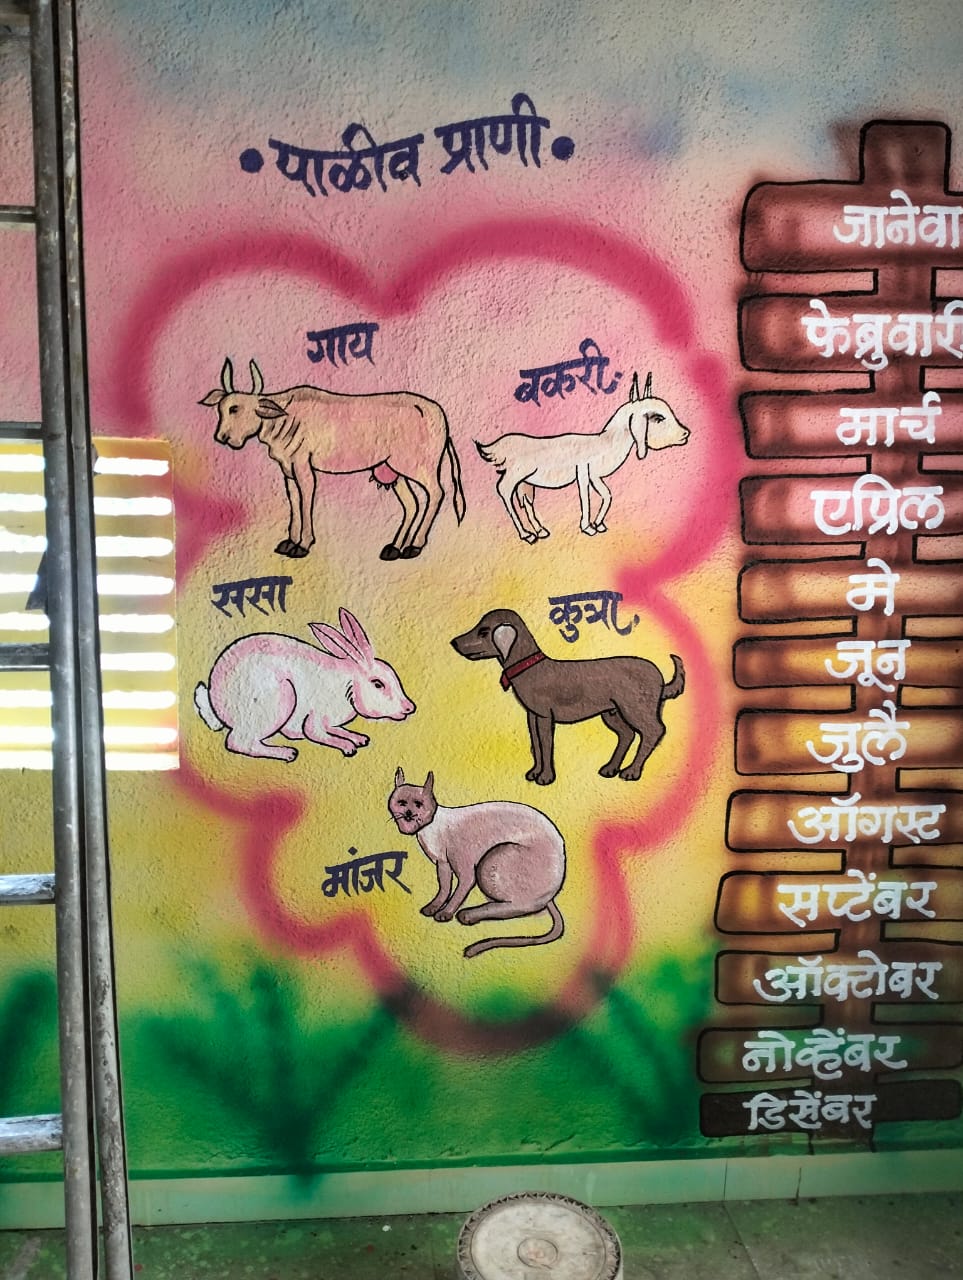 • पाळीव प्राणी •
गाय
बकरी.
ससा
कुत्रा.
मांजर
जानेवा
फेब्रुवारी
मार्च
एप्रिल
मे
जून
जुलै
ऑगस्ट
सप्टेंबर
ऑक्टोबर
नोव्हेंबर
डिसेंबर